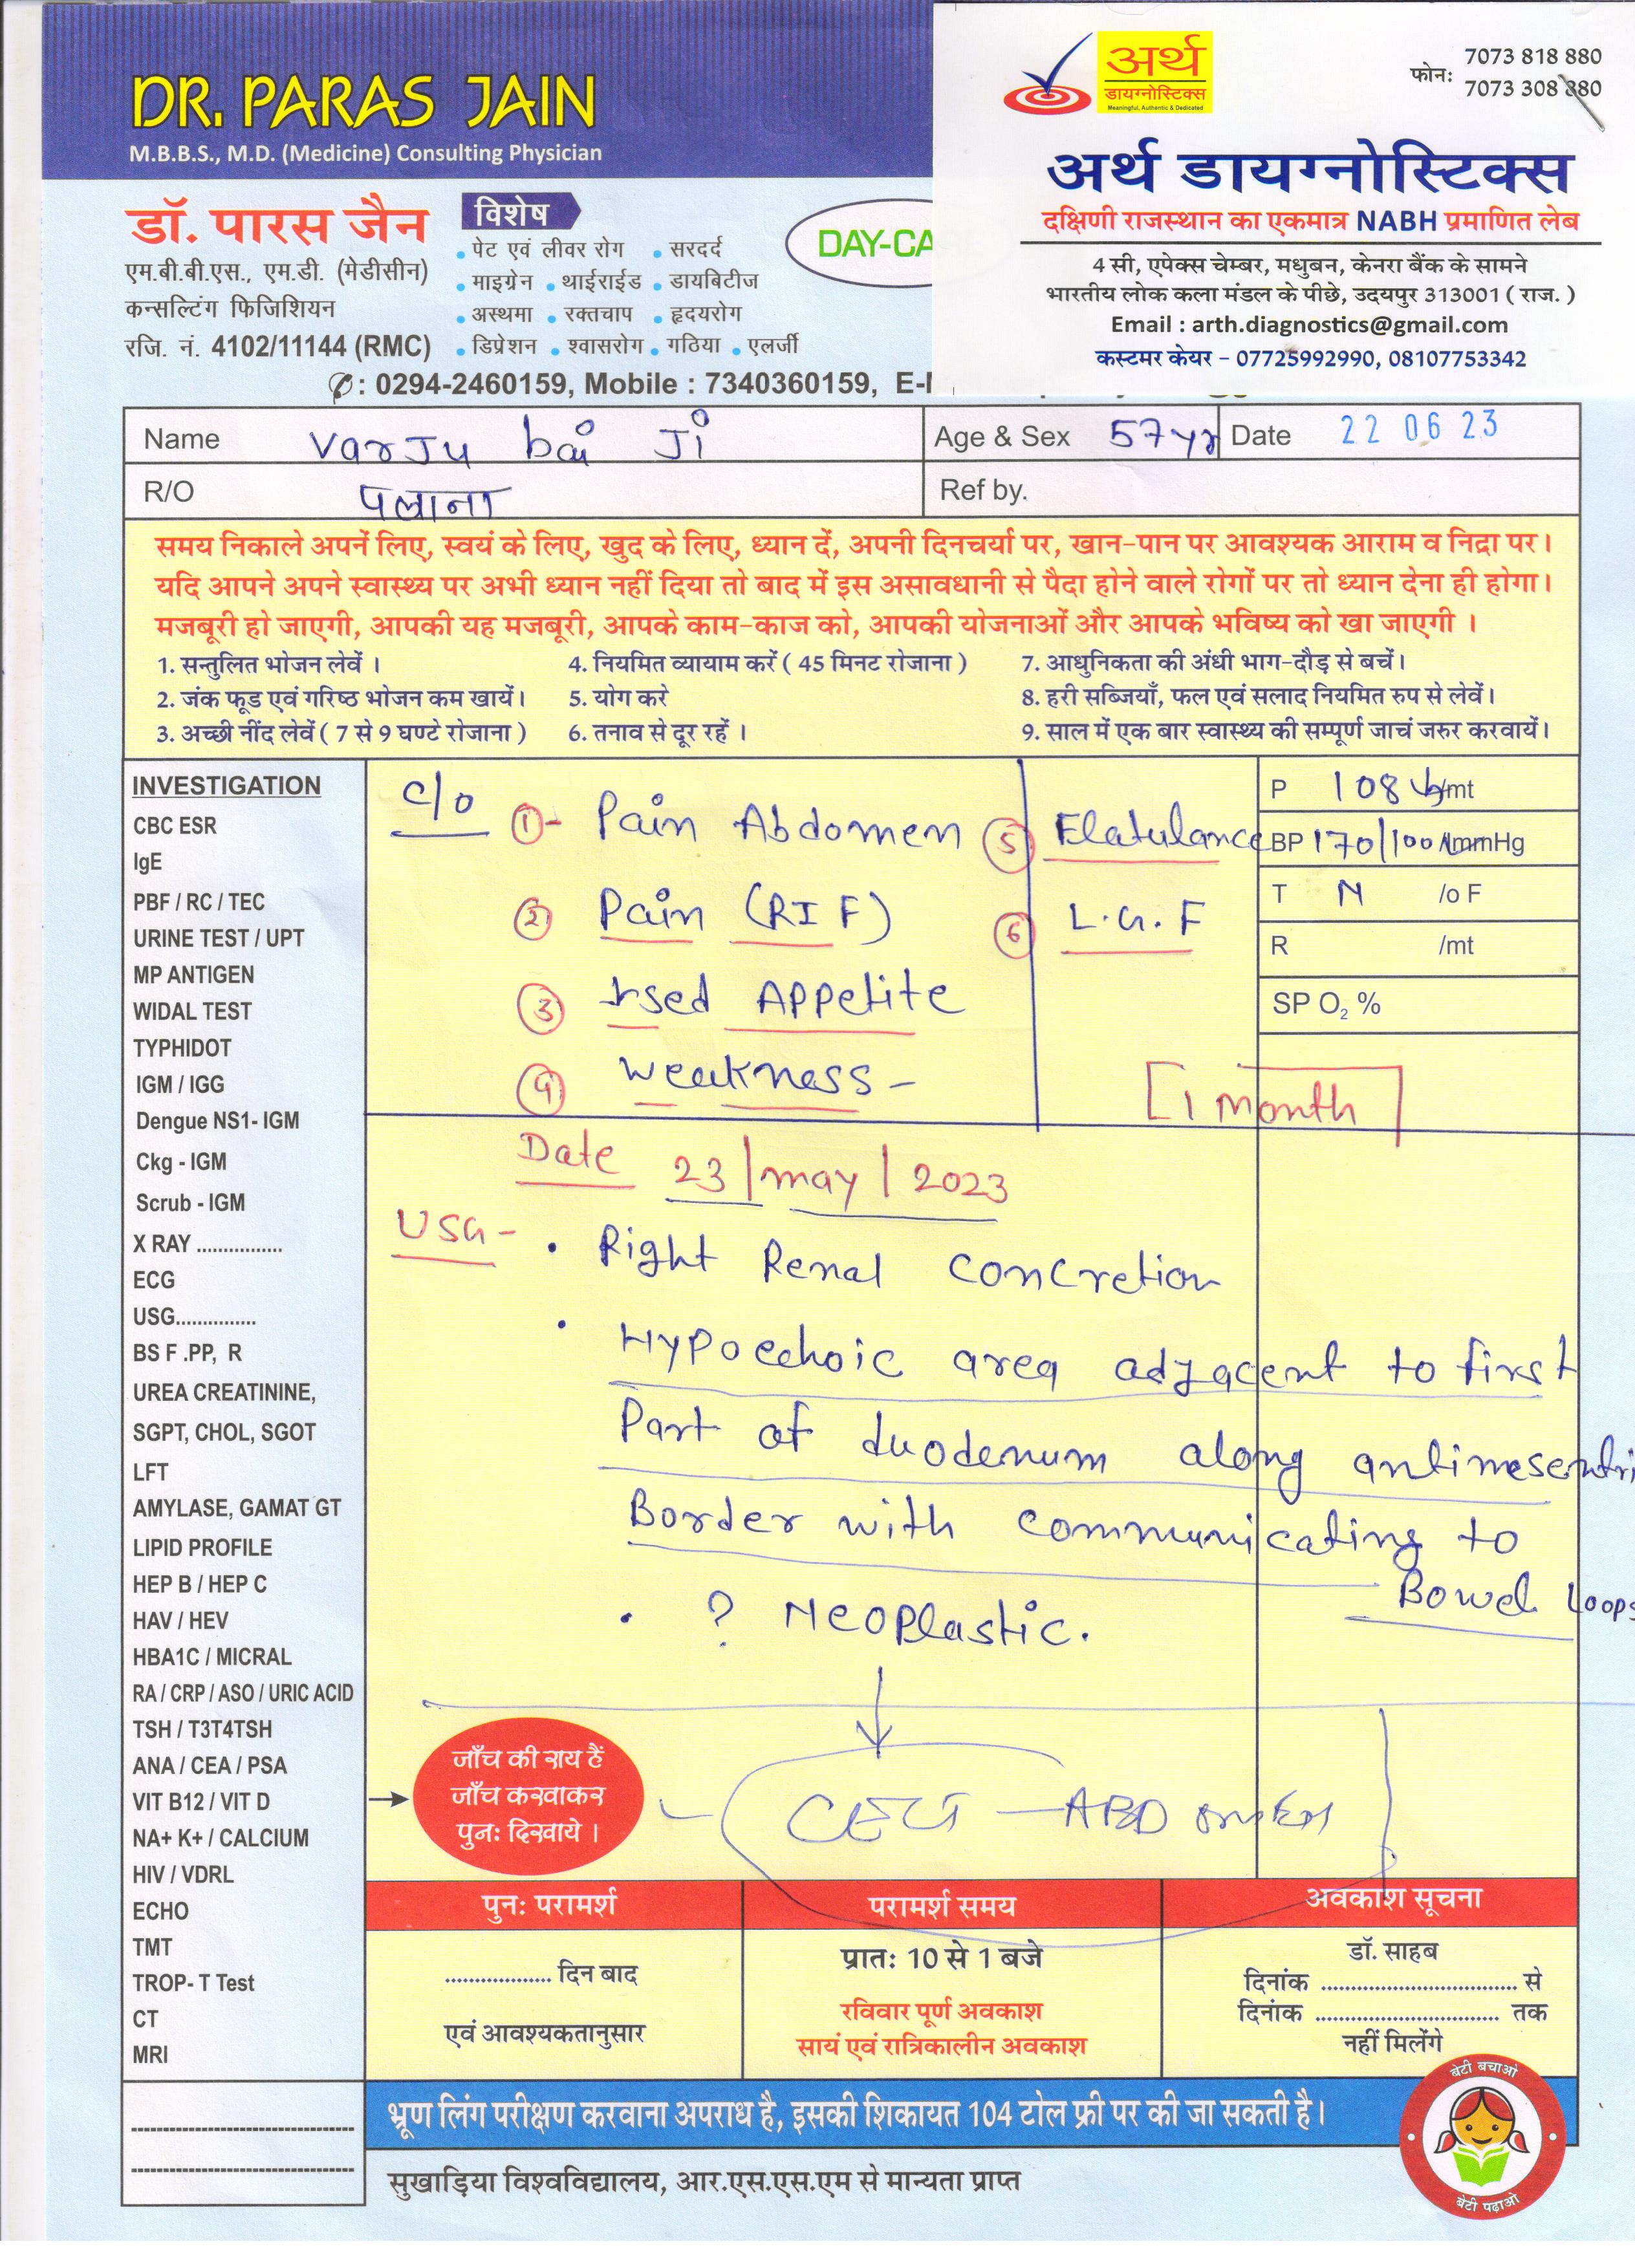 DR. PARAS JAIN
M.B.B.S., M.D. (Medicine) Consulting Physician
डॉ. पारस जैन
एम.बी.बी.एस., एम.डी. (मेडीसीन)
कन्सल्टिंग फिजिशियन
रजि. नं. 4102/11144 (RMC)
विशेष
• पेट एवं लीवर रोग • सरदर्द
• माइग्रेन • थाईराईड • डायबिटीज
• अस्थमा • रक्तचाप • हृदयरोग
• डिप्रेशन • श्वासरोग • गठिया • एलर्जी
DAY-CA
: 0294-2460159, Mobile : 7340360159, E-
अर्थ
डायग्नोस्टिक्स
Meaningful, Authentic & Dedicated
फोन: 7073 818 880
7073 308 880
अर्थ डायग्नोस्टिक्स
दक्षिणी राजस्थान का एकमात्र NABH प्रमाणित लेब
4 सी, एपेक्स चेम्बर, मधुबन, केनरा बैंक के सामने
भारतीय लोक कला मंडल के पीछे, उदयपुर 313001 ( राज. )
Email : arth.diagnostics@gmail.com
कस्टमर केयर - 07725992990, 08107753342
Name Varju bai Ji Age & Sex 57yr Date 22 06 23
R/O पलाना Ref by.
समय निकाले अपनें लिए, स्वयं के लिए, खुद के लिए, ध्यान दें, अपनी दिनचर्या पर, खान-पान पर आवश्यक आराम व निद्रा पर।
यदि आपने अपने स्वास्थ्य पर अभी ध्यान नहीं दिया तो बाद में इस असावधानी से पैदा होने वाले रोगों पर तो ध्यान देना ही होगा।
मजबूरी हो जाएगी, आपकी यह मजबूरी, आपके काम-काज को, आपकी योजनाओं और आपके भविष्य को खा जाएगी ।
1. सन्तुलित भोजन लेवें । 4. नियमित व्यायाम करें ( 45 मिनट रोजाना ) 7. आधुनिकता की अंधी भाग-दौड़ से बचें।
2. जंक फूड एवं गरिष्ठ भोजन कम खायें। 5. योग करे 8. हरी सब्जियाँ, फल एवं सलाद नियमित रुप से लेवें।
3. अच्छी नींद लेवें ( 7 से 9 घण्टे रोजाना ) 6. तनाव से दूर रहें । 9. साल में एक बार स्वास्थ्य की सम्पूर्ण जाचं जरुर करवायें।
INVESTIGATION
CBC ESR
IgE
PBF / RC / TEC
URINE TEST / UPT
MP ANTIGEN
WIDAL TEST
TYPHIDOT
IGM / IGG
Dengue NS1- IGM
Ckg - IGM
Scrub - IGM
X RAY ................
ECG
USG...............
BS F .PP, R
UREA CREATININE,
SGPT, CHOL, SGOT
LFT
AMYLASE, GAMAT GT
LIPID PROFILE
HEP B / HEP C
HAV / HEV
HBA1C / MICRAL
RA / CRP / ASO / URIC ACID
TSH / T3T4TSH
ANA / CEA / PSA
VIT B12 / VIT D
NA+ K+ / CALCIUM
HIV / VDRL
ECHO
TMT
TROP- T Test
CT
MRI
C/o ① - Pain Abdomen ⑤ Flatulance
② Pain (RIF) ⑥ L.G.F
③ ↓sed Appetite
④ Weakness -
P 108 /mt
BP 170/100 mmHg
T N /o F
R /mt
SP O₂ %
[1 Month]
Date 23/may/2023
USG - • Right Renal concretion
• Hypoechoic area adjacent to first
Part of duodenum along antimesentri
Border with communicating to
Bowel loops
• ? Neoplastic.
जाँच की राय हैं
जाँच करवाकर
पुनः दिखाये ।
CECT - ABDomen
पुनः परामर्श
.................. दिन बाद
एवं आवश्यकतानुसार
परामर्श समय
प्रातः 10 से 1 बजे
रविवार पूर्ण अवकाश
सायं एवं रात्रिकालीन अवकाश
अवकाश सूचना
डॉ. साहब
दिनांक ................................ से
दिनांक .............................. तक
नहीं मिलेंगे
भ्रूण लिंग परीक्षण करवाना अपराध है, इसकी शिकायत 104 टोल फ्री पर की जा सकती है।
सुखाड़िया विश्वविद्यालय, आर.एस.एस.एम से मान्यता प्राप्त
बेटी बचाओ
बेटी पढ़ाओ